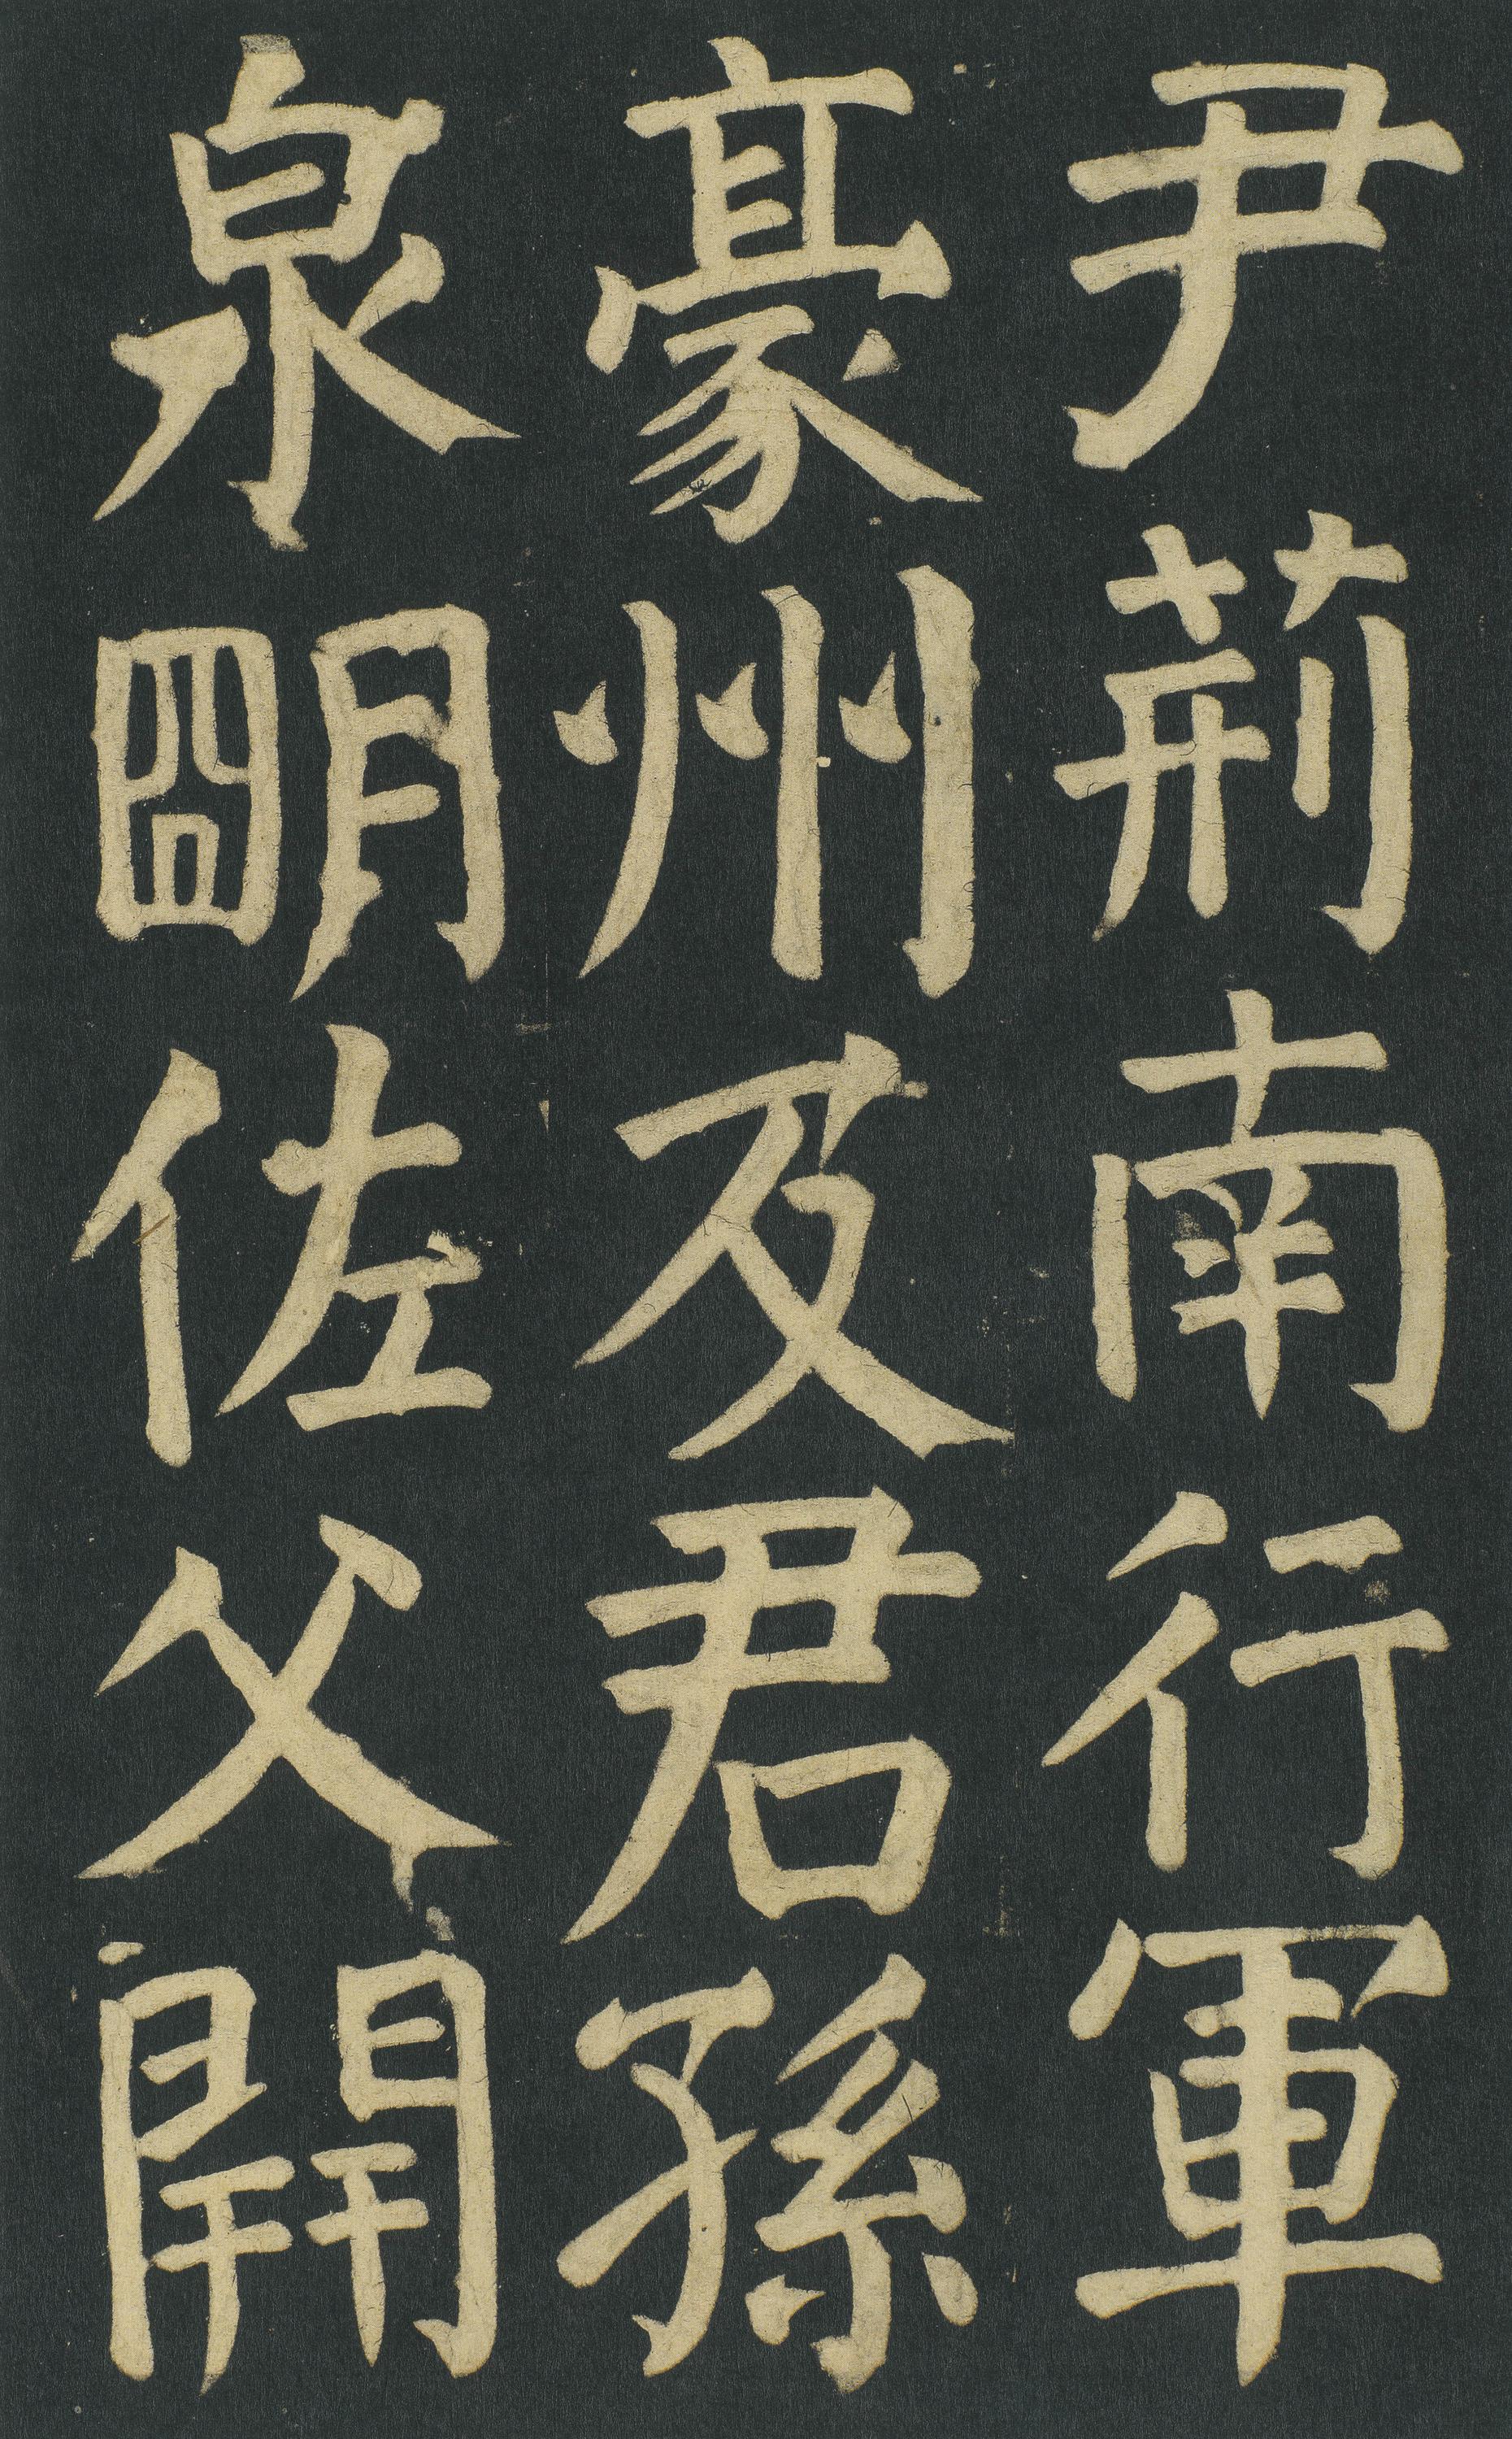 尹荊南行軍
豪州及君孫
泉朙佐父開